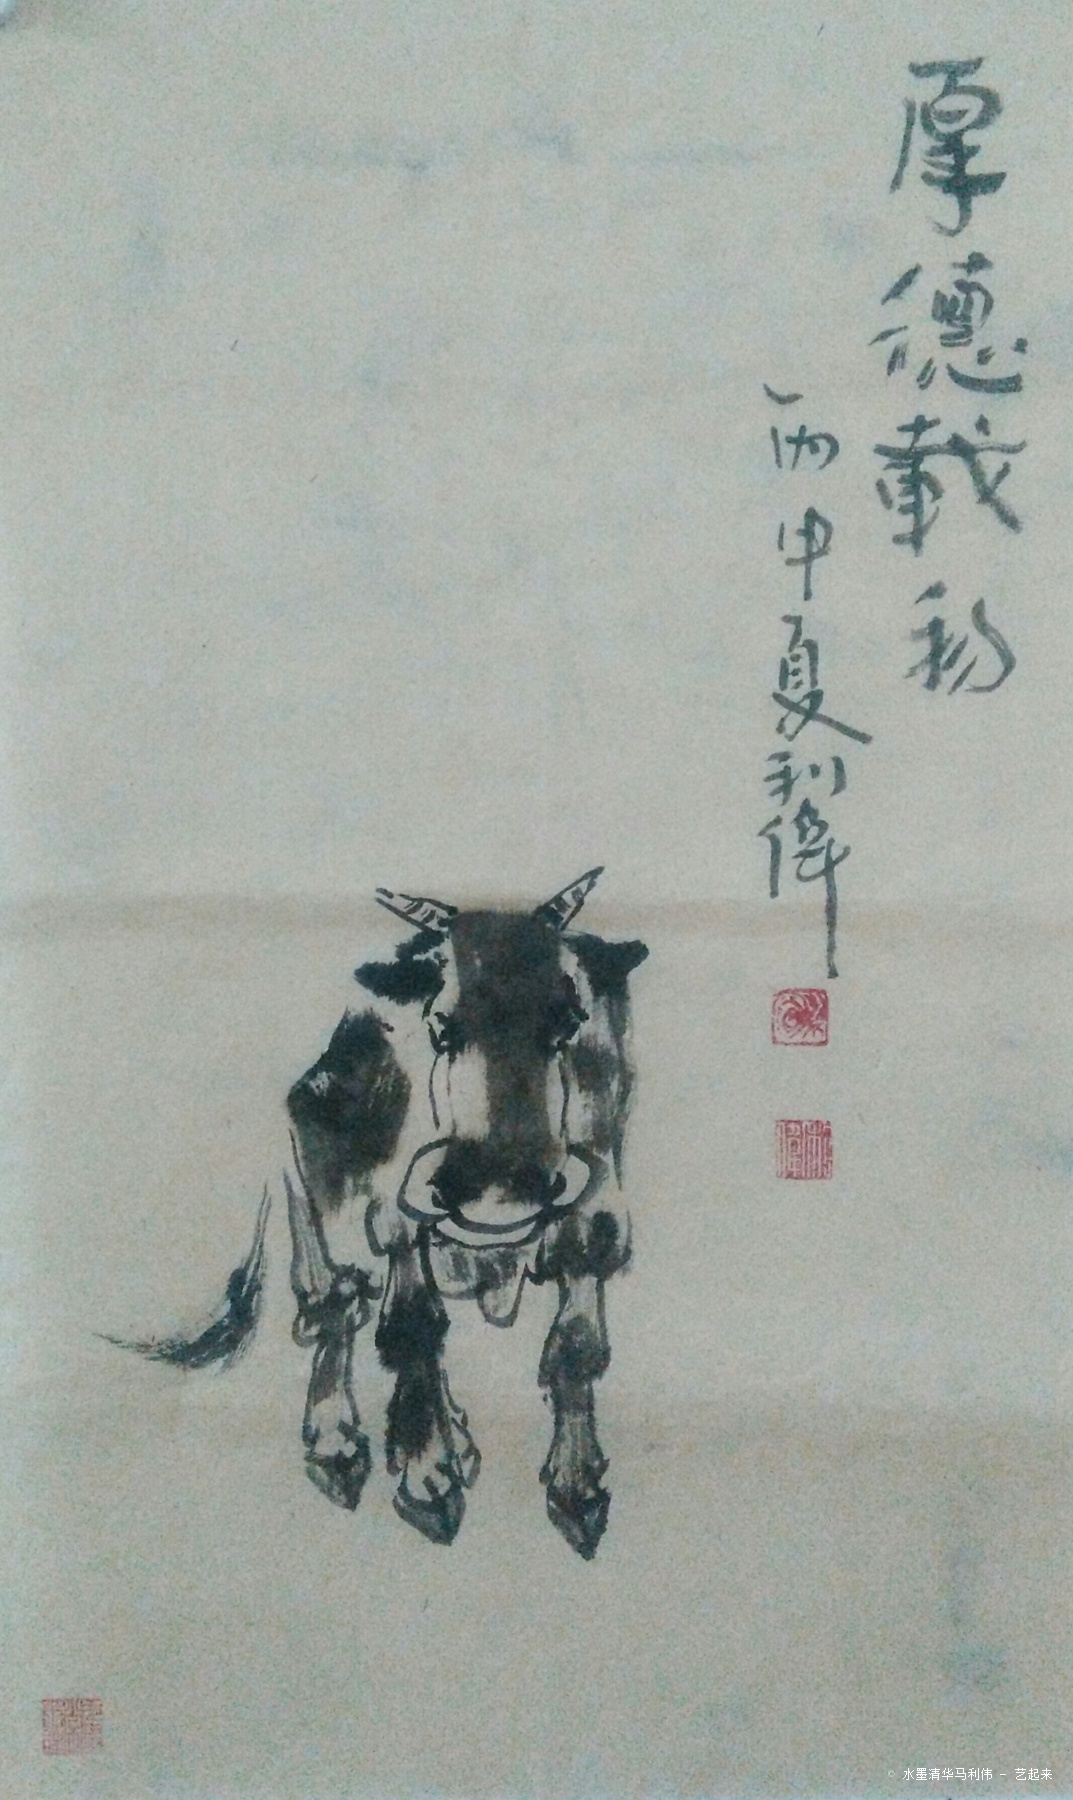 厚德載物
丙申夏利偉
© 水墨清华马利伟 - 艺起来